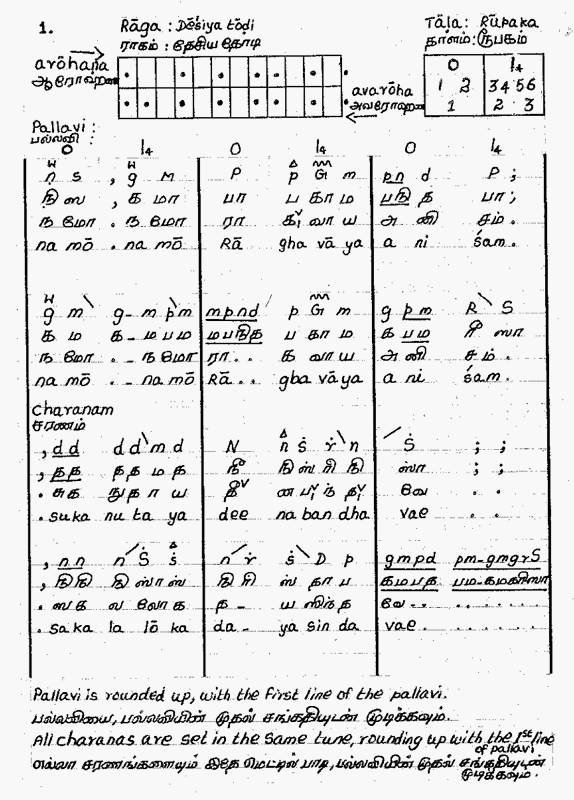 1.
Rāga : Dēsiya tōdi
ராகம் : தேசிய தோடி
Tāla : Rūpaka
தாளம்: ரூபகம்
arōhana
ஆரோஹண
avarōha
அவரோஹண
0 I₄
1 2 3 4 5 6
1 2 3
Pallavi :
பல்லவி :
0 I₄ 0 I₄ 0 I₄
ṇ s , g M P p G m pn d P ;
நி ஸ , க மா பா ப கா ம பநி த பா ;
ந மோ . ந மோ ரா க வா ய அ னி சம் .
na mō . na mō Rā gha vā ya a ni śam .
g m g - m p m mpnd p G m g pm R S
க ம க - ம ப ம மபநித ப கா ம க பம ரீ ஸா
ந மோ . . ந மோ ரா . . க வா ய அ னி சம் .
na mō . . na mō Rā . . gha vā ya a ni śam .
Charanam
சரணம்
, d d d d m d N n ṡ ṙ n Ṡ ; ;
, த த த த ம த நீ நி ஸ் ரி நி ஸா ; ;
. சுக நு த ய தீ ன ப ந் த வே . .
. suka nu ta ya dee na ban dha vae . .
, n n n Ṡ ṡ n ṙ ṡ D p gmpd pm-gmgrS
, நி நி நி ஸா ஸ நி ரி ஸ தா ப கமபத பம-கமகரிஸா
. ஸ க ல லோ க த - ய ஸிந் த வே . .
. saka la lō ka da - ya sin da vae . . . . . . .
Pallavi is rounded up, with the first line of the pallavi.
பல்லவியை, பல்லவியின் முதல் சங்கதியுடன் முடிக்கவும்.
All charanas are set in the same tune, rounding up with the 1st line
of pallavi
எல்லா சரணங்களையும் இதே மெட்டில் பாடி, பல்லவியின் முதல் சங்கதியுடன்
முடிக்கவும்.